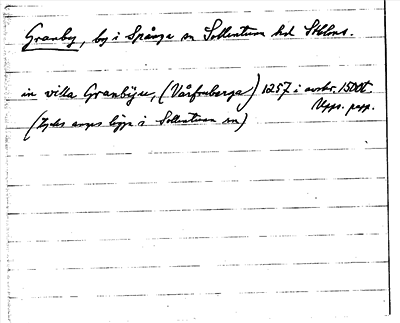 Granby, by i Spånga sn Sollentuna hd Sthlms.
in villa Granbyiu, (Vårfruberga) 1257 i avskr. 1500t.
Upps. papp.
(Tycks anges ligga i Sollentuna sn)